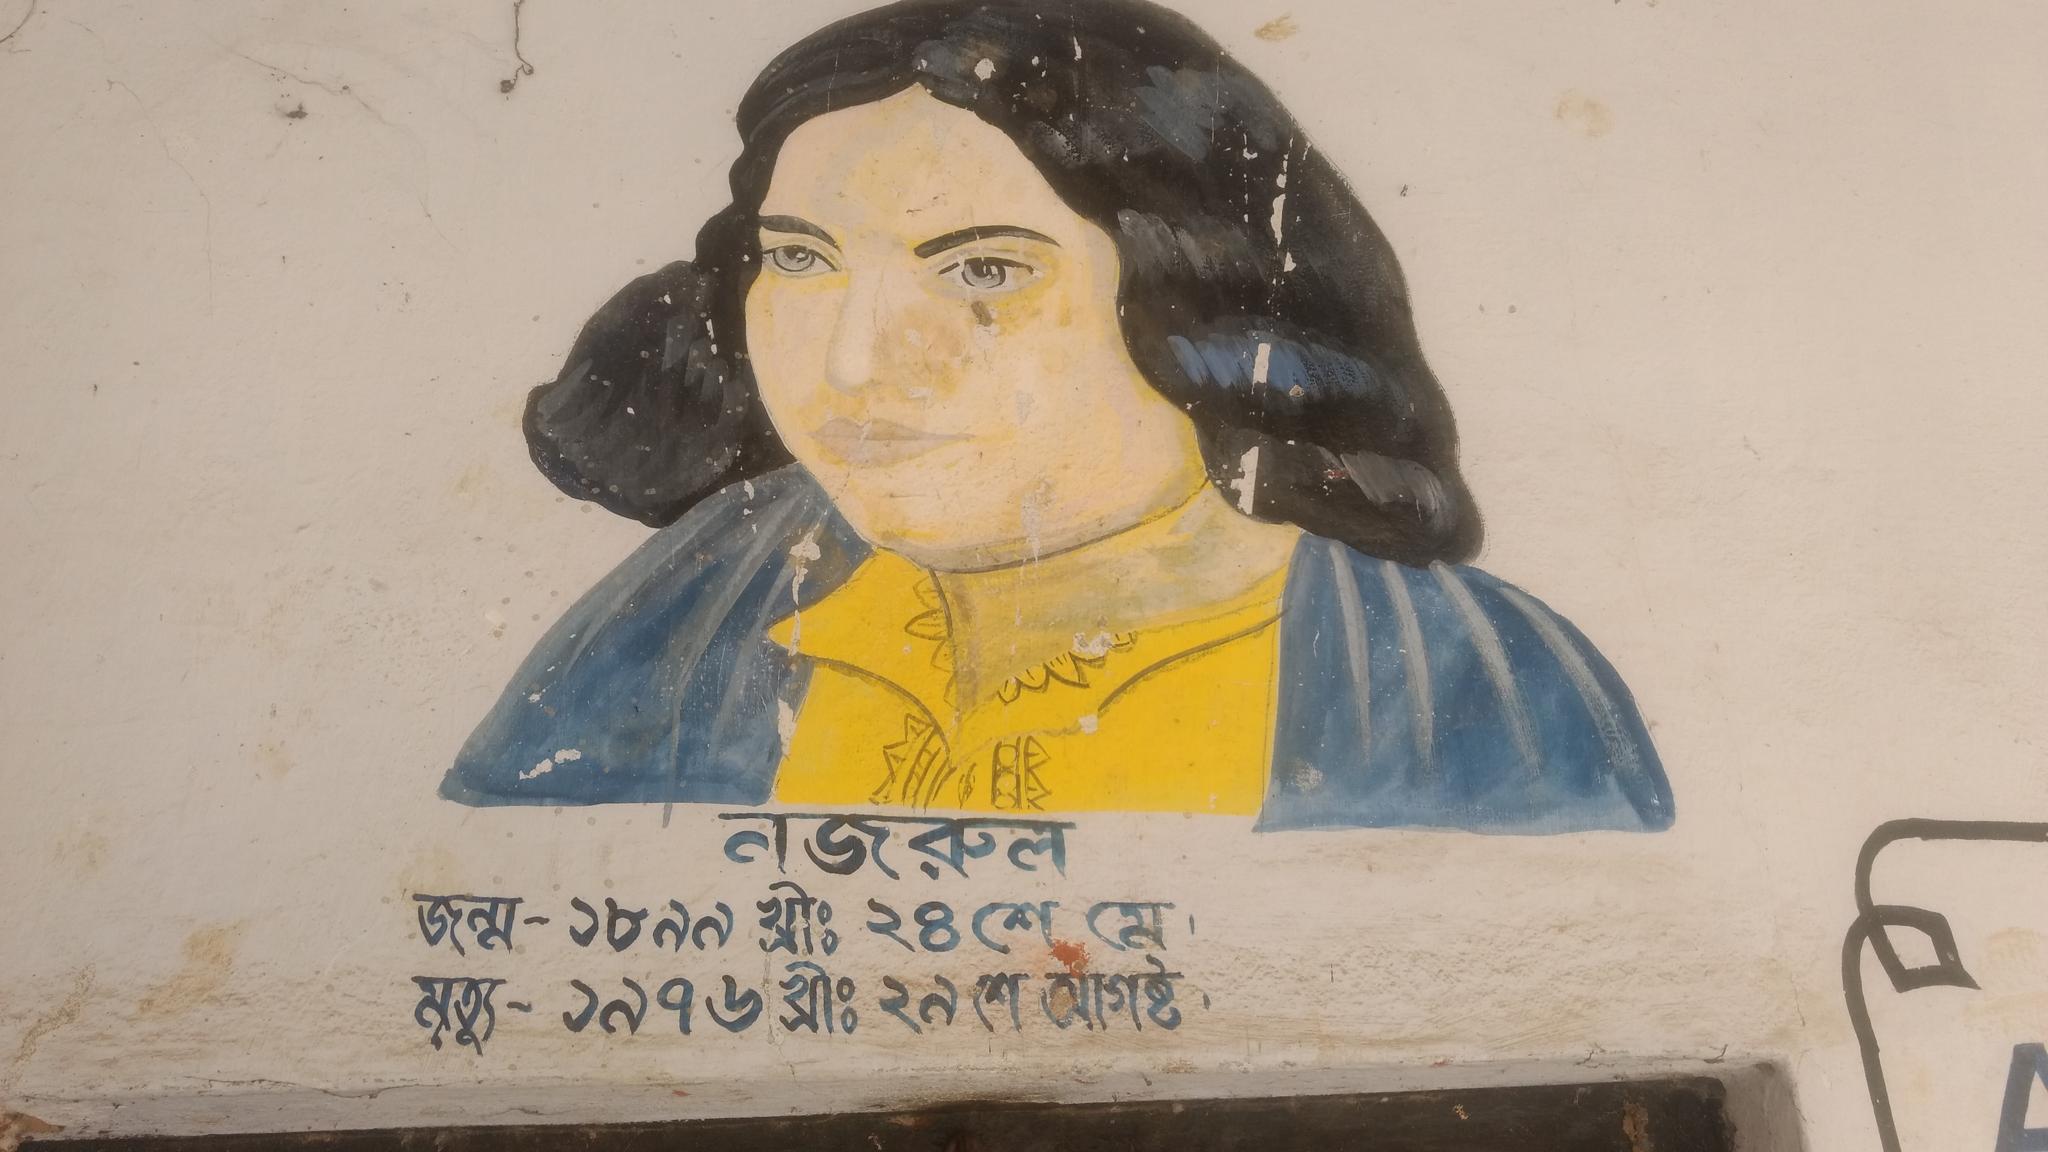 নজরুল
জন্ম - ১৮৯৯ খ্রীঃ ২৪ শে মে।
মৃত্যু - ১৯৭৬ খ্রীঃ ২৯ শে আগষ্ট।
A